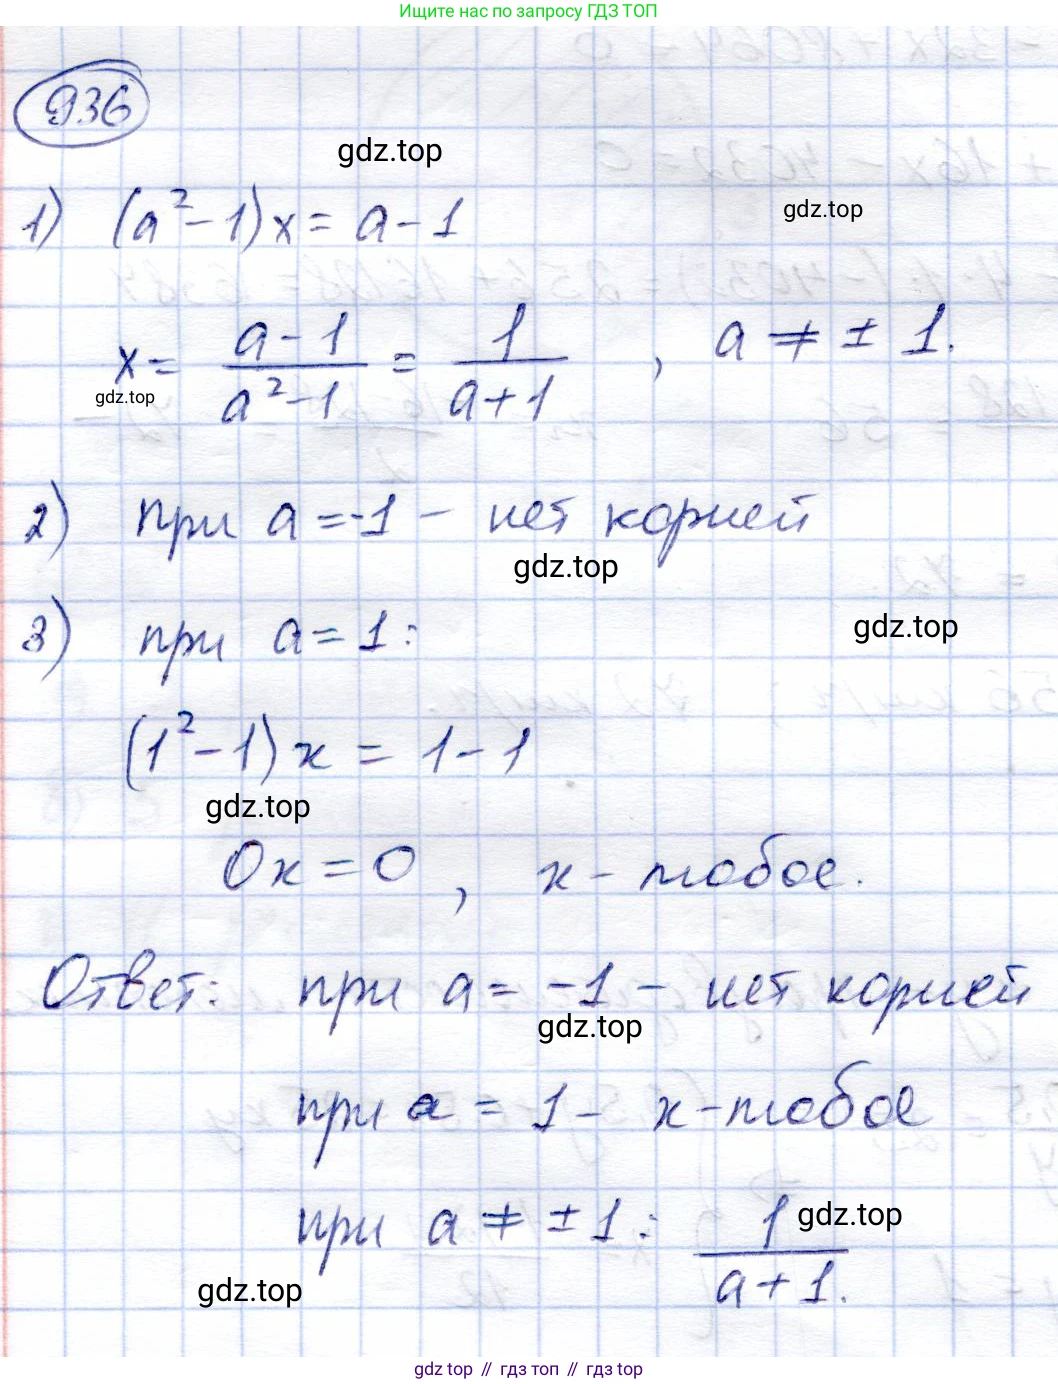 Ищите нас по запросу ГДЗ ТОП
936
gdz.top
1) (a²-1)x = a-1
gdz.top
x = \frac{a-1}{a²-1} = \frac{1}{a+1} , a ≠ ± 1.
gdz.top
2) при a = -1 - нет корней
gdz.top
3) при a = 1:
gdz.top
(1²-1)x = 1-1
gdz.top
0x = 0 , x - любое.
Ответ: при a = -1 - нет корней
gdz.top
при a = 1 - x - любое
при a ≠ ± 1: \frac{1}{a+1}.
gdz.top
gdz.top
gdz top // гдз топ // гдз top